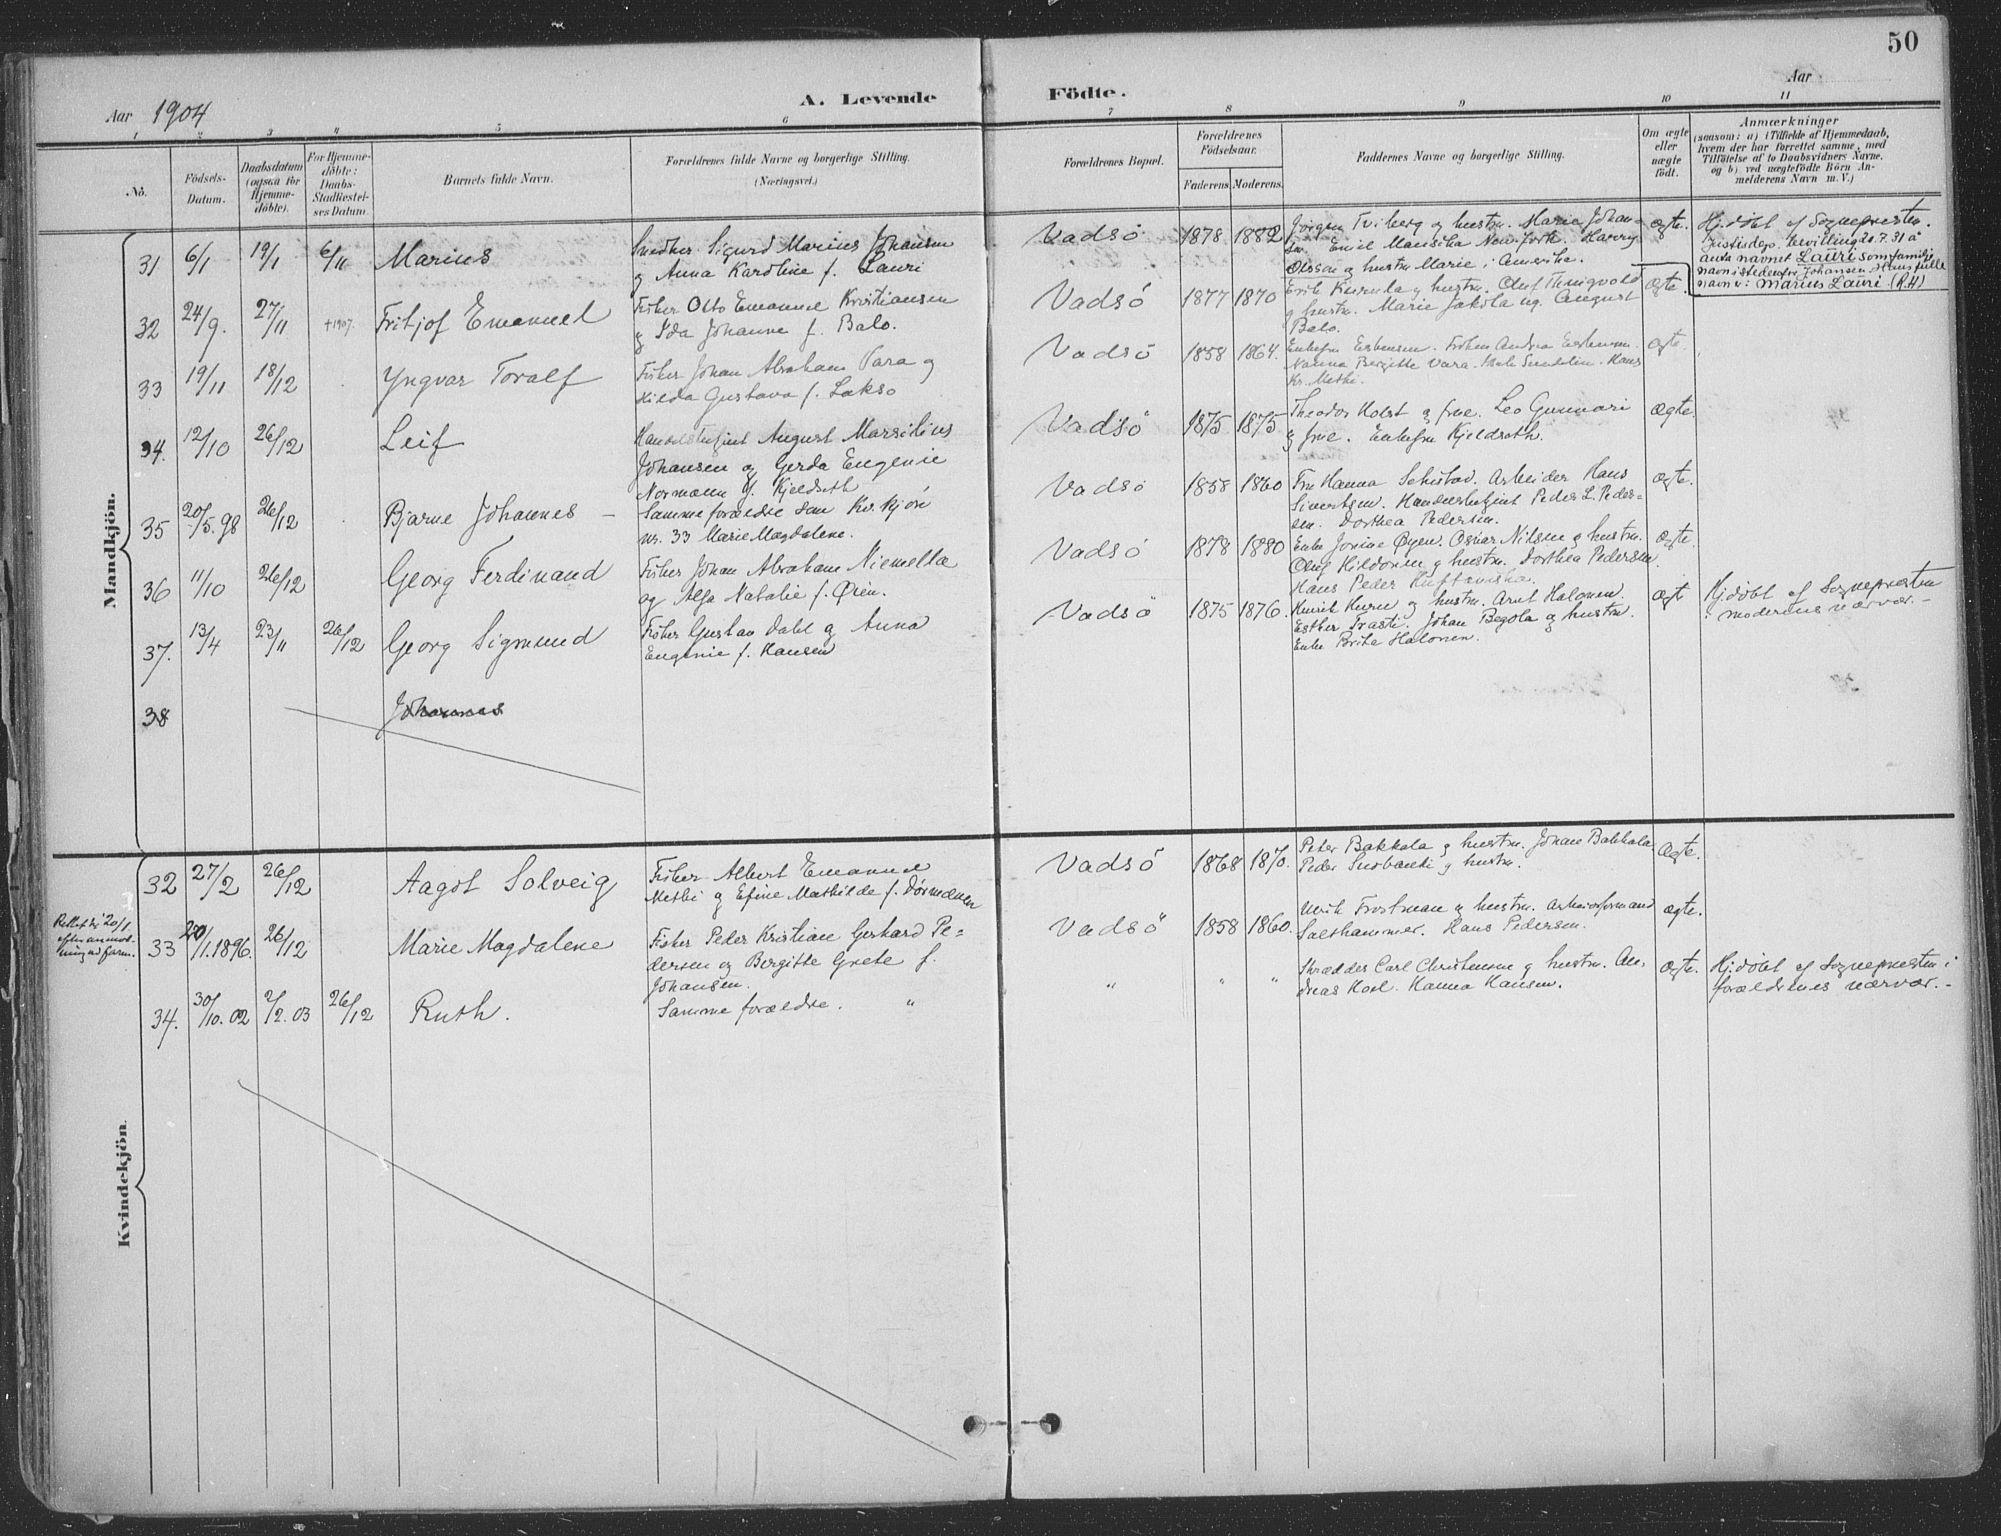 50
Aar 1904
A. Levende Födte.
Aar
1 2 3 4 5 6 7 8 9 10 11
No.
Födsels-
Datum.
Daabsdatum
(ogsaa for
Hjemme-
döbte).
For Hjemme-
döbte:
Daabs-
Stadfæstel-
ses Datum
Barnets fulde Navn.
Forældrenes fulde Navne og borgerlige Stilling.
(Næringsvei.)
Forældrenes Bopæl.
Forældrenes
Födselsaar.
Faderens Moderens
Faddernes Navne og borgerlige Stilling.
Om ægte
eller
uægte
födt.
Anmærkninger
(saasom: a) i Tilfælde af Hjemmedaab,
hvem der har forrettet samme, med
Tilföielse af to Daabsvidners Navne,
og b) ved uægtefödte Börn An-
melderens Navn m. V.)
Mandkjön.
31 6/1 19/1 6/11 Marius
Snedker Sigurd Marius Johansen
og Anna Karoline f. Lauri
Vadsö 1878 1882
Jörgen Tviberg og hustru. Marie Johan-
Olsson og hustru Marie i Amerika.
ægte.
Hj.döbt af Sognepresten.
Justisdep. bevilling 20.7.31 å
anta navnet Lauri som familie
navn istedenfor Johansen. Hans fulle
navn: Marius Lauri. (R.H)
32 24/9. 27/11 +1907. Fritjof Emanuel
Fisker Otto Emanuel Kristiansen
og Ida Johanne f. Balo.
Vadsö 1877 1870
Erik Kurula og hustru. Oluf Tingvold
og hustru. Marie Jakola ug. August
Balo.
ægte.
33 19/11 18/12 Yngvar Toralf
Fisker Johan Abraham Vara og
Hilda Gustava f. Lakso
Vadsö 1858 1864.
Enkefru Esbensen. Fröken Andrea Esbensen.
Nanna Bergitte Vara. Hans
Kr. Methi.
ægte.
34. 12/10 26/12 Leif
Handelsbetjent August Marsilius
Johansen og Gerda Eugenie
Normann f. Kjeldseth
Vadsö 1875 1875
Theodor Holst og frue. Leo Gunnari
og frue. Enkefru Kjeldseth.
ægte.
35 20/5.98 26/12 Bjarne Johannes -
Samme forældre som Kv.kjön
nr. 33 Marie Magdalene.
Vadsö 1858 1860
Fru Hanna Schistad. Arbeider Hans
Sivertsen. Handelsbetjent Peder L. Peder-
sen. Dorthea Pedersen.
ægte.
36 11/10 26/12 Georg Ferdinand
Fisker Johan Abraham Niemella
og Alfa Natalie f. Øien.
Vadsö 1878 1880
Enke Jonine Øyen. Oskar Nilsen og hustru.
Oluf Hildonen og hustru. Dorthea Pedersen.
Hans Peder
ægte.
37. 13/4 23/11 26/12 Georg Sigmund
Fisker Gustav Dahl og Anna
Eugenie f. Hansen
Vadsö 1875 1876.
Henrik Kuru og hustru. Arnt Halonen.
Esther Irasti. Johan Begola og hustru.
Enke Brita Halonen.
ægte
Hj.döbt af Sognepresten
i moderens nærvær. -
38 Johannes
Kvindekjön.
32 27/2 26/12 Aagot Solveig
Fisker Albert Emanuel
Methi og Efine Mathilde f. Dørmænen
Vadsö 1868 1870.
Peter Bakkala og hustru. Johan Bakkala
Peder Snobanki og hustru.
ægte.
Rettet 20/1
efter anmod-
ning
33 20/1.1896. 26/12 Marie Magdalene
Fisker Peder Kristian Gerhard Pe-
dersen og Bergitte Grete f.
Johansen.
Vadsö 1858 1860.
Ulrik Frostman og hustru. Arbeiderformand
Salthammer. Hans Pedersen.
ægte.
34. 30/10.02 2/2.03 26/12 Ruth.
Samme forældre. "
" " "
Skrædder Carl Christensen og hustru. An-
dreas Karl. Hanna Hansen.
ægte.
Hj.döbt af Sognepresten i
forældrenes nærvær. -